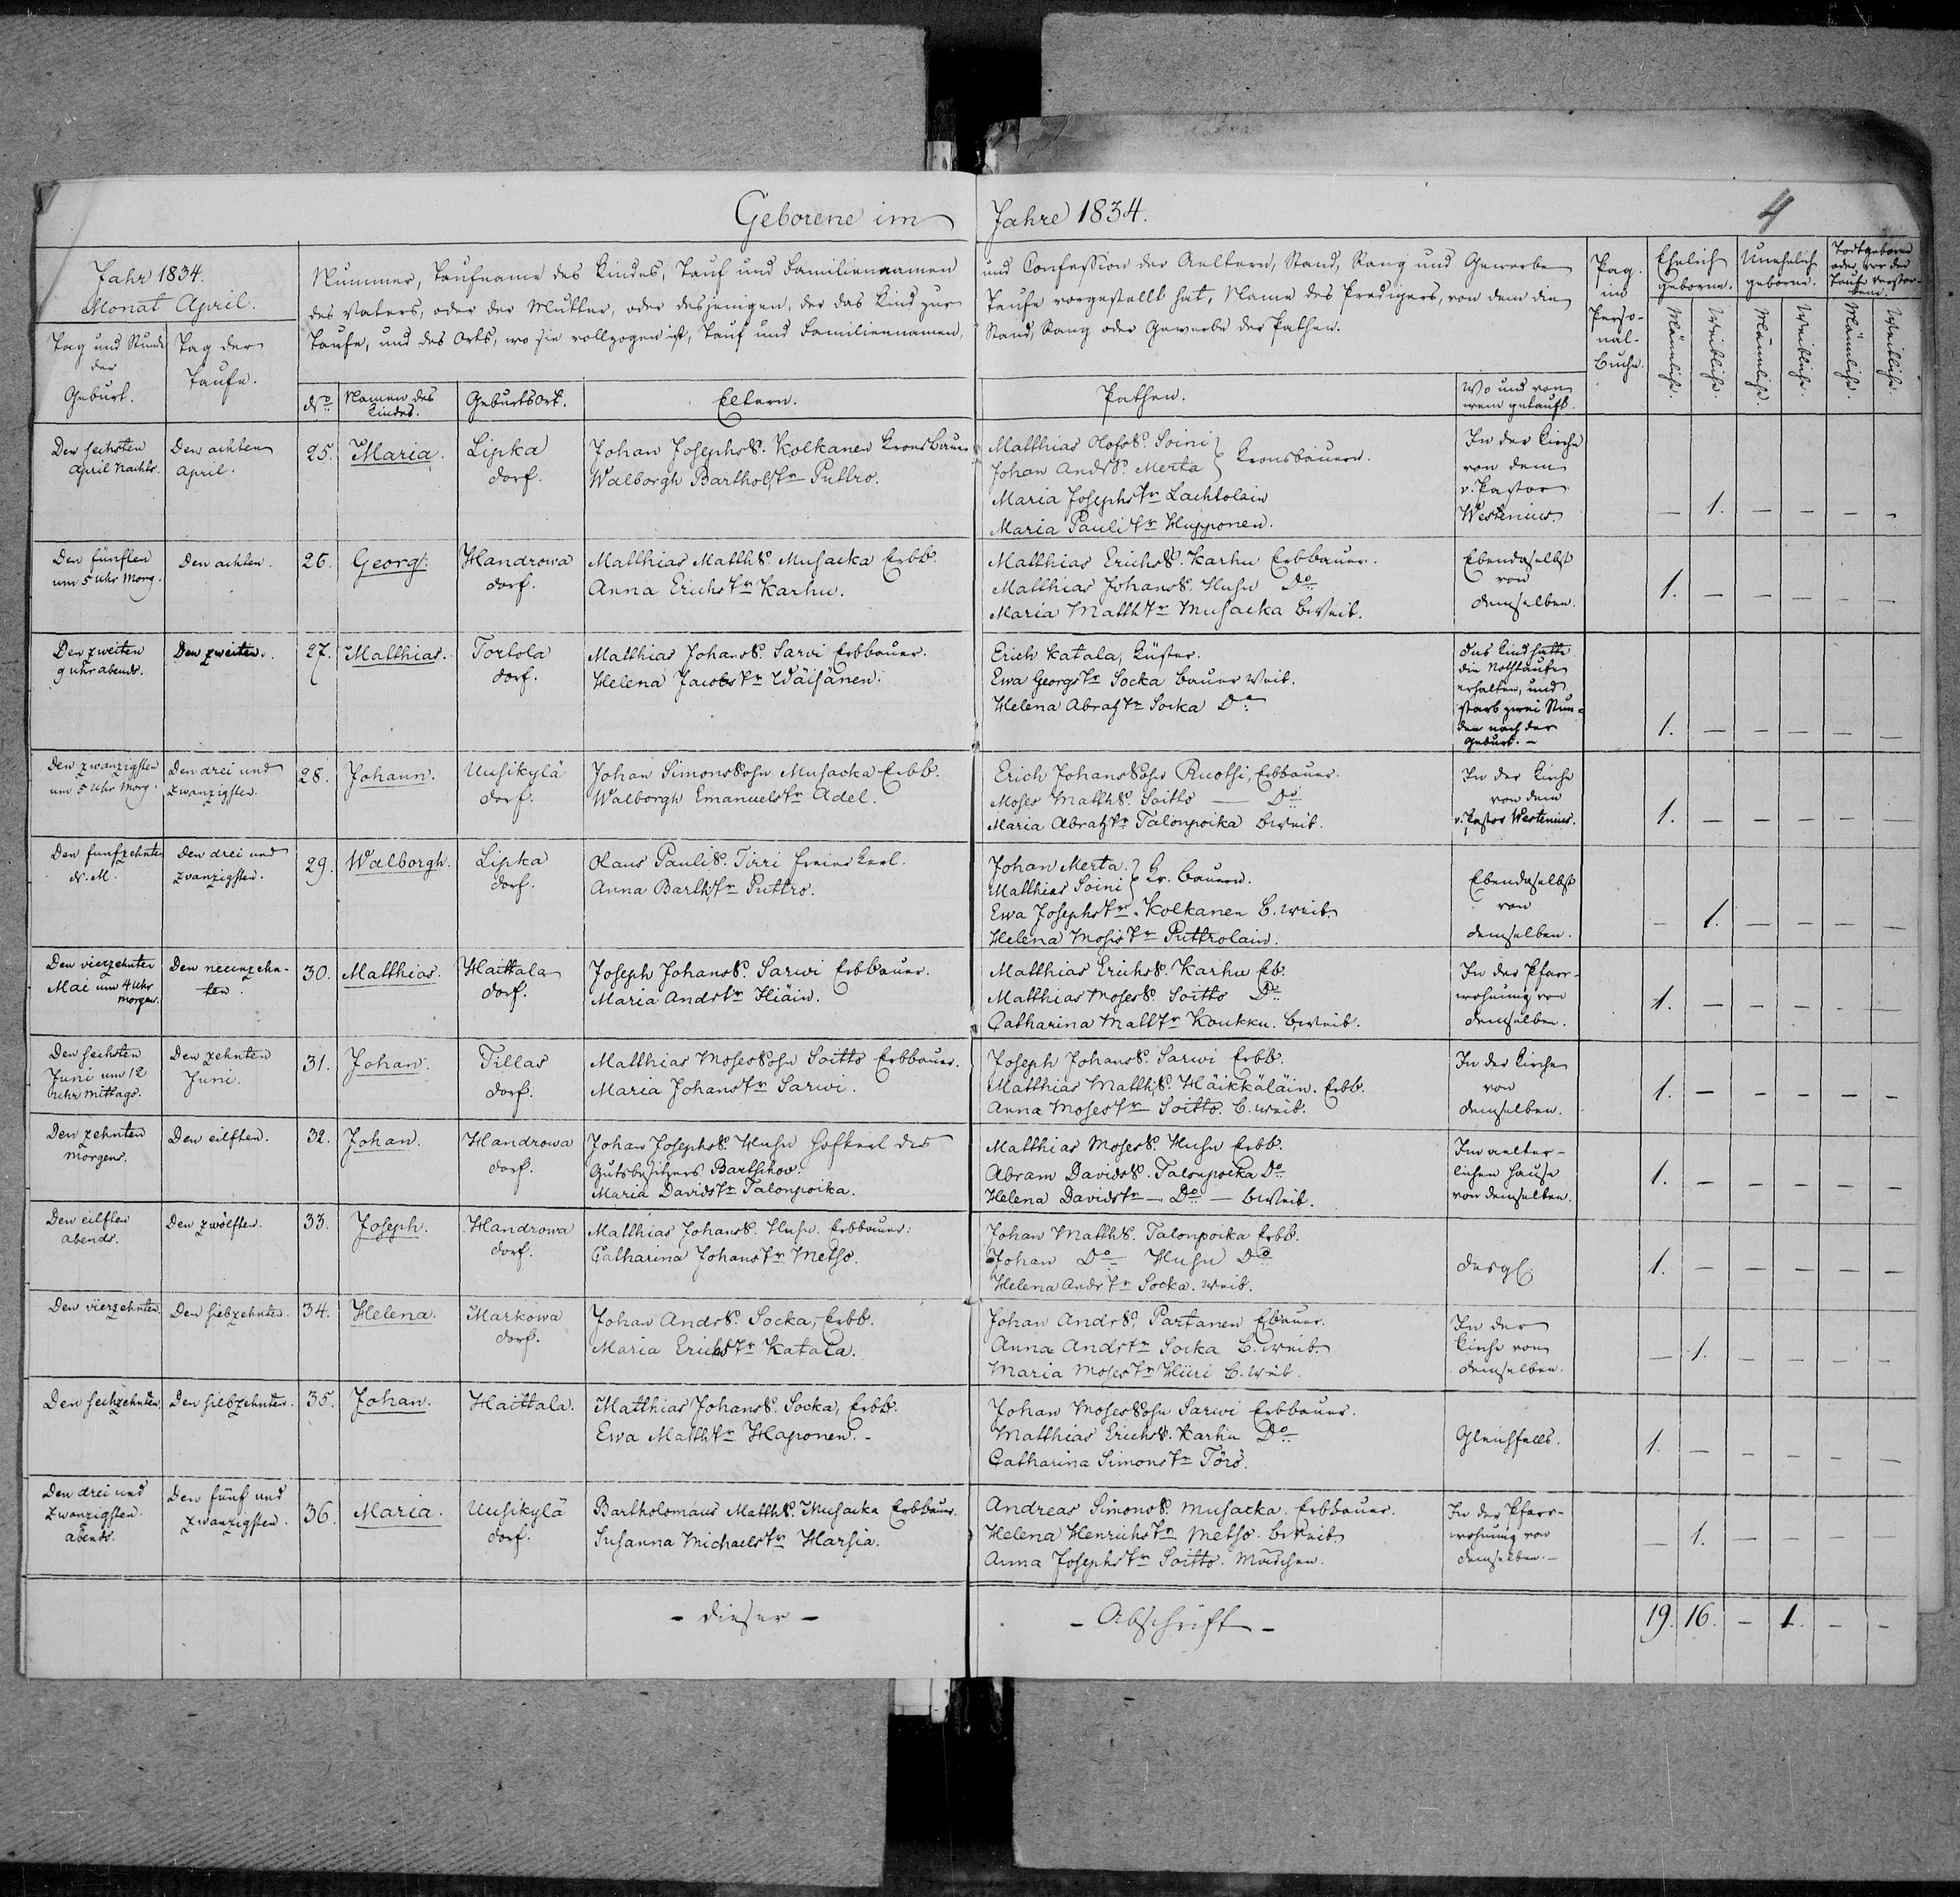 Geborene im Jahre 1834.
4
Jahr 1834.
Monat April.
Tag und Stunde
der
Geburt.
Tag der
Taufe.
Nummer, Taufname des Kindes, Tauf und Familiennamen
des Vaters, oder der Mutter, oder desjenigen, der das Kind zur
Taufe, und des Orts, wo sie vollzogen ist, Tauf und Familiennamen,
und Confession der Aeltern, Stand, Rang und Gewerbe
Taufe vorgestellt hat, Name des Predigers, von dem die
Stand, Rang oder Gewerbe der Pathen.
No
Namen des
Kindes.
Geburtsort.
Eltern.
Pathen.
Wo und von
wem getauft.
Pag.
im
Perso-
nal-
buche.
Ehelich
geborne.
Unehelich
geborne.
Todtgeborne
oder vor der
Taufe verstor-
bene.
Männliche.
Weibliche.
Männliche.
Weibliche.
Männliche.
Weibliche.
Den sechsten
April Nachts.
Den achten
April.
25.
Maria.
Lipka
dorf.
Johan Josephs S. Kolkanen Kronsbauer
Walborgh Barthols Tr Puttro.
Matthias Olofs S. Soini
Johan Andrs S. Merta } Kronsbauern.
Maria Josephs Tr Lachtolain
Maria Pauli Tr Hupponen.
In der Kirche
von dem
v. Pastor
Westenius.
— 1. — — — —
Den fünften
um 5 Uhr Morg.
Den achten.
26.
Georg.
Handrowa
dorf.
Matthias Matth S. Musacka Erbb.
Anna Erichs Tr Karhu.
Matthias Erichs S. Karhu Erbbauer.
Matthias Johans S. Husu Do
Maria Matth Tr Musacka bWeib.
Ebendaselbst
von
demselben.
1. — — — — —
Den zweiten
9 Uhr abends.
Den zweiten.
27.
Matthias.
Torlola
dorf.
Matthias Johans S. Sarvi Erbbauer.
Helena Jacobs Tr Wäisänen.
Erich Katala, Küster.
Ewa Georgs Tr Socka Bauer Weib.
Helena Abrah Tr Socka Do
Das Kind hatte
die Nothtaufe
erhalten, und
starb zwei Stun-
den nach der
Geburt. —
1. — — — — —
Den zwanzigsten
um 5 Uhr Morg.
Den drei und
zwanzigsten.
28.
Johann.
Uusikylä
dorf.
Johan Simons Sohn Musacka Erbb.
Walborgh Emanuels Tr Adel.
Erich Johans Sohn Ruotsi, Erbbauer.
Moses Matth S. Soitto — Do
Maria Abrah Tr Talonpoika bweib.
In der Kirche
von dem
v. Pastor Westenius.
1. — — — — —
Den funfzehnten
d. M.
Den drei und
zwanzigsten.
29.
Walborgh.
Lipka
dorf.
Olaus Pauli S. Tirri freier Kerl.
Anna Barth. Tr Puttro.
Johan Merta.
Matthias Soini } Kr. bauern.
Ewa Josephs Tr Kolkanen b. weib.
Helena Mosis Tr Puttrolain.
Ebendaselbst
von
demselben.
— 1. — — — —
Den vierzehnten
Mai um 4 Uhr
morgen.
Den neunzehn-
ten.
30.
Matthias.
Haittala
dorf.
Joseph Johans S. Sarwi Erbbauer.
Maria Andrs Tr Hiäin.
Matthias Erichs S. Karhu Eb.
Matthias Moses S. Soitto Do
Catharina Matt Tr Koukku. bWeib.
In der Pfarr-
wohnung von
demselben.
1. — — — — —
Den sechsten
Juni um 12
Uhr Mittags.
Den zehnten
Juni.
31.
Johan.
Tillas
dorf.
Matthias Moses Sohn Soitto Erbbauer.
Maria Johans Tr Sarwi.
Joseph Johans S. Sarwi Erbb.
Matthias Matth S. Häikkäläin. Erbb.
Anna Moses Tr Soitto. b. weib.
In der Kirche
von
demselben.
1. — — — — —
Den zehnten
morgens.
Den eilften.
32.
Johan.
Handrowa
dorf.
Johan Josephs S. Husu Hofkerl des
Gutsbesitzers Bartschow.
Maria Davids Tr Talonpoika.
Matthias Moses S. Husu Erbb.
Abram Davids S. Talonpoika Do
Helena Davids Tr — Do — bWeib.
Im aelter-
lichen Hause
von demselben.
1. — — — — —
Den eilften
abends.
Den zwölften.
33.
Joseph.
Handrowa
dorf.
Matthias Johans S. Husu. Erbbauer.
Catharina Johans Tr Metso.
Johan Matth S. Talonpoika Erbb.
Johan Do Husu Do
Helena Andr Tr Socka. weib.
desgl.
1. — — — — —
Den vierzehnten.
Den siebzehnten.
34.
Helena.
Markowa
dorf.
Johan Andrs S. Socka, Erbb.
Maria Erichs Tr Katala.
Johan Andrs S. Partanen Ebauer.
Anna Andrs Tr Socka b. weib.
Maria Moses Tr Hiiri b. weib.
In der
Kirche von
demselben.
— 1. — — — —
Den sechzehnten.
Den siebzehnten.
35.
Johan.
Haittala.
Matthias Johans S. Socka, Erbb.
Ewa Matth Tr Haponen. -
Johan Moses Sohn Sarwi Erbbauer.
Matthias Erichs S. Karhu Do
Catharina Simons Tr Törö.
Gleichfalls.
1. — — — — —
Den drei und
zwanzigsten
abends.
Den fünf und
zwanzigsten.
36.
Maria.
Uusikylä
dorf.
Bartholomäus Matth S. Musacka Erbbauer.
Susanna Michaels Tr Harsia.
Andreas Simons S. Musacka. Erbbauer.
Helena Henrichs Tr Metso. bWeib.
Anna Josephs Tr Soitto. Mädchen.
In der Pfarr-
wohnung von
demselben. —
— 1. — — — —
- dieser -
- Abschrift -
19. 16. - 1. - -